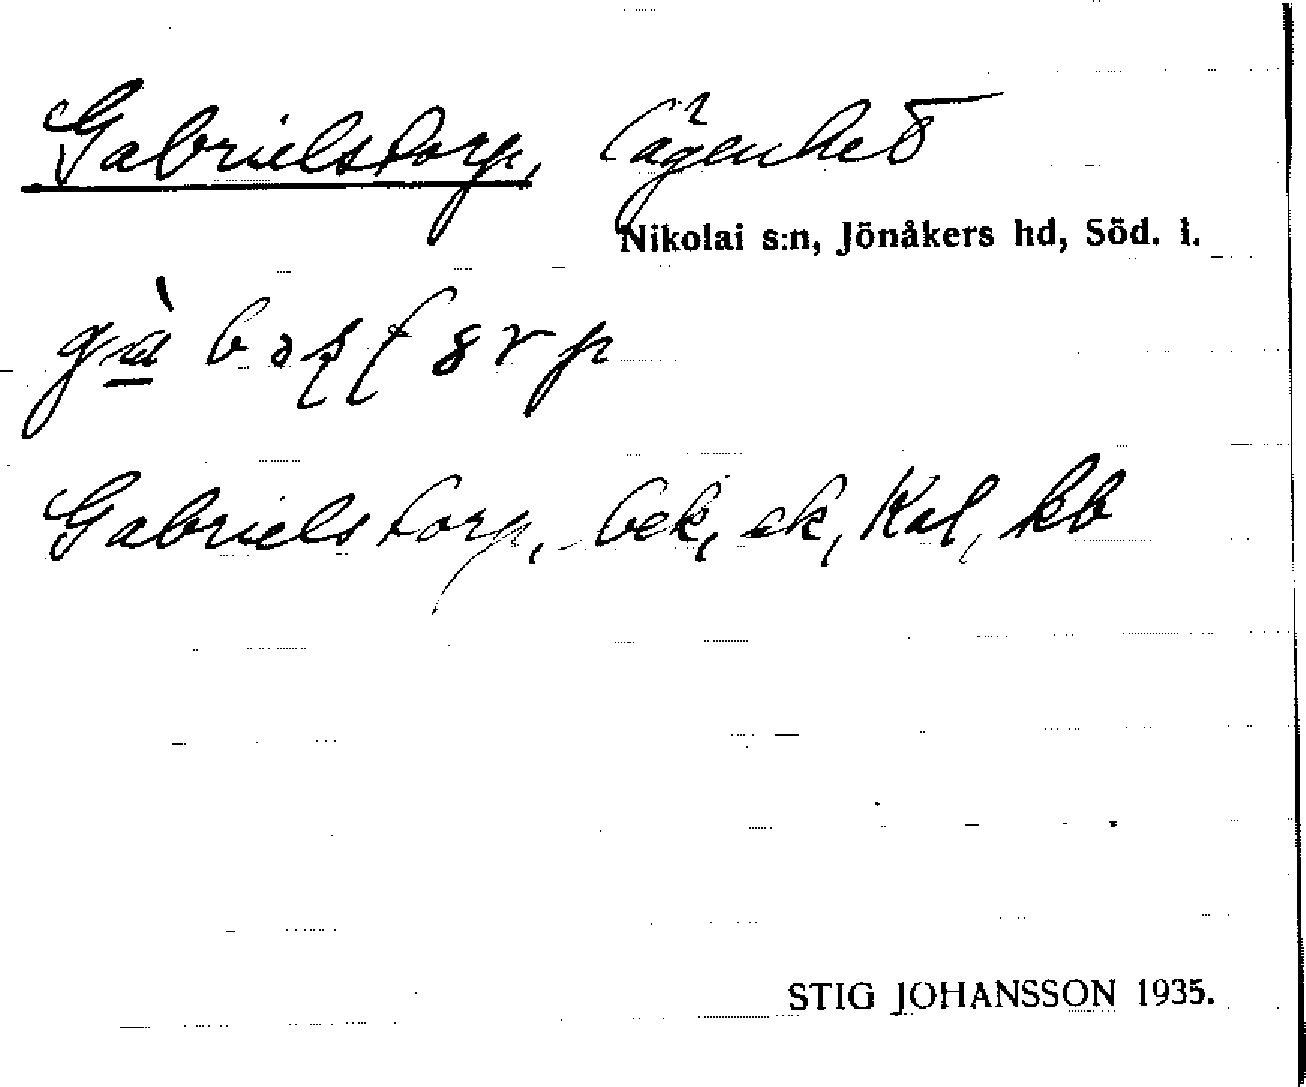 Gabrielstorp, lägenhet
Nikolai s:n, Jönåkers hd, Söd. l.
Gabrielstorp, bek, ek, Kal, kb
STIG JOHANSSON 1935.